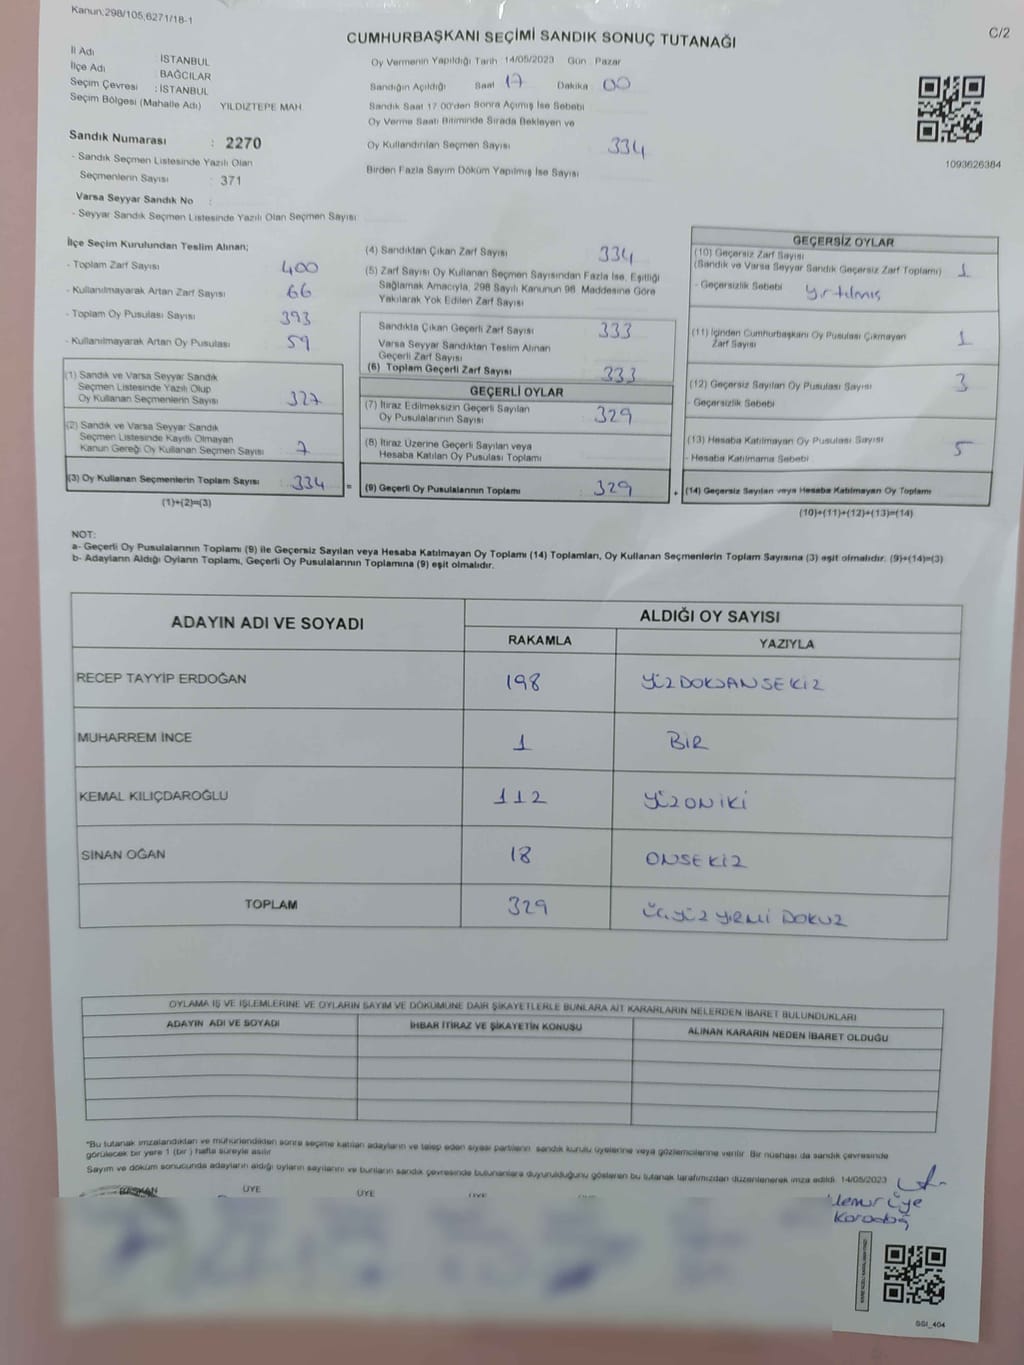 Kanun;298/105;6271/18-1
C/2
CUMHURBAŞKANI SEÇİMİ SANDIK SONUÇ TUTANAĞI
İl Adı : İSTANBUL
İlçe Adı : BAĞCILAR
Seçim Çevresi : İSTANBUL
Seçim Bölgesi (Mahalle Adı) YILDIZTEPE MAH.
Sandık Numarası : 2270
- Sandık Seçmen Listesinde Yazılı Olan
Seçmenlerin Sayısı : 371
Varsa Seyyar Sandık No :
- Seyyar Sandık Seçmen Listesinde Yazılı Olan Seçmen Sayısı
Oy Vermenin Yapıldığı Tarih 14/05/2023 Gün Pazar
Sandığın Açıldığı Saat 17 Dakika 00
Sandık Saat 17.00'den Sonra Açımış İse Sebebi
Oy Verme Saati Bitiminde Sırada Bekleyen ve
Oy Kullandırılan Seçmen Sayısı 334
Birden Fazla Sayım Döküm Yapılmış İse Sayısı
1093626384
İlçe Seçim Kurulundan Teslim Alınan;
- Toplam Zarf Sayısı : 400
- Kullanılmayarak Artan Zarf Sayısı : 66
- Toplam Oy Pusulası Sayısı : 393
- Kullanılmayarak Artan Oy Pusulası : 59
(1) Sandık ve Varsa Seyyar Sandık
Seçmen Listesinde Yazılı Olup
Oy Kullanan Seçmenlerin Sayısı : 327
(2) Sandık ve Varsa Seyyar Sandık
Seçmen Listesinde Kayıtlı Olmayan
Kanun Gereği Oy Kullanan Seçmen Sayısı : 7
(3) Oy Kullanan Seçmenlerin Toplam Sayısı : 334 =
(1)+(2)=(3)
(4) Sandıktan Çıkan Zarf Sayısı 334
(5) Zarf Sayısı Oy Kullanan Seçmen Sayısından Fazla İse, Eşitliği
Sağlamak Amacıyla, 298 Sayılı Kanunun 98. Maddesine Göre
Yakılarak Yok Edilen Zarf Sayısı
Sandıkta Çıkan Geçerli Zarf Sayısı : 333
Varsa Seyyar Sandıktan Teslim Alınan
Geçerli Zarf Sayısı
(6) Toplam Geçerli Zarf Sayısı : 333
GEÇERLİ OYLAR
(7) İtiraz Edilmeksizin Geçerli Sayılan
Oy Pusulalarının Sayısı : 329
(8) İtiraz Üzerine Geçerli Sayılan veya
Hesaba Katılan Oy Pusulası Toplamı
(9) Geçerli Oy Pusulalarının Toplamı : 329 +
GEÇERSİZ OYLAR
(10) Geçersiz Zarf Sayısı
(Sandık ve Varsa Seyyar Sandık Geçersiz Zarf Toplamı) 1
- Geçersizlik Sebebi yırtılmış
(11) İçinden Cumhurbaşkanı Oy Pusulası Çıkmayan
Zarf Sayısı 1
(12) Geçersiz Sayılan Oy Pusulası Sayısı 3
- Geçersizlik Sebebi
(13) Hesaba Katılmayan Oy Pusulası Sayısı
- Hesaba Katılmama Sebebi 5
(14) Geçersiz Sayılan veya Hesaba Katılmayan Oy Toplamı
(10)+(11)+(12)+(13)=(14)
NOT:
a- Geçerli Oy Pusulalarının Toplamı (9) ile Geçersiz Sayılan veya Hesaba Katılmayan Oy Toplamı (14) Toplamları, Oy Kullanan Seçmenlerin Toplam Sayısına (3) eşit olmalıdır. (9)+(14)=(3)
b- Adayların Aldığı Oyların Toplamı, Geçerli Oy Pusulalarının Toplamına (9) eşit olmalıdır.
ADAYIN ADI VE SOYADI ALDIĞI OY SAYISI
RAKAMLA YAZIYLA
RECEP TAYYİP ERDOĞAN 198 YÜZDOKSANSEKİZ
MUHARREM İNCE 1 BİR
KEMAL KILIÇDAROĞLU 112 YÜZONİKİ
SİNAN OĞAN 18 ONSEKİZ
TOPLAM 329 ÜÇYÜZYİRMİ DOKUZ
OYLAMA İŞ VE İŞLEMLERİNE VE OYLARIN SAYIM VE DÖKÜMÜNE DAİR ŞİKAYETLERLE BUNLARA AİT KARARLARIN NELERDEN İBARET BULUNDUKLARI
ADAYIN ADI VE SOYADI İHBAR İTİRAZ VE ŞİKAYETİN KONUSU ALINAN KARARIN NEDEN İBARET OLDUĞU
*Bu tutanak imzalandıktan ve mühürlendikten sonra seçime katılan adayların ve talep eden siyasi partilerin sandık kurulu üyelerine veya gözlemcilerine verilir. Bir nüshası da sandık çevresinde
görülecek bir yere 1 (bir ) hafta süreyle asılır
Sayım ve döküm sonucunda adayların aldığı oyların sayılarını ve bunların sandık çevresinde bulunanlara duyurulduğunu gösteren bu tutanak tarafımızdan düzenlenerek imza edildi. 14/05/2023
BAŞKAN ÜYE ÜYE ÜYE
Memur Üye
Karadağ
SSI_404